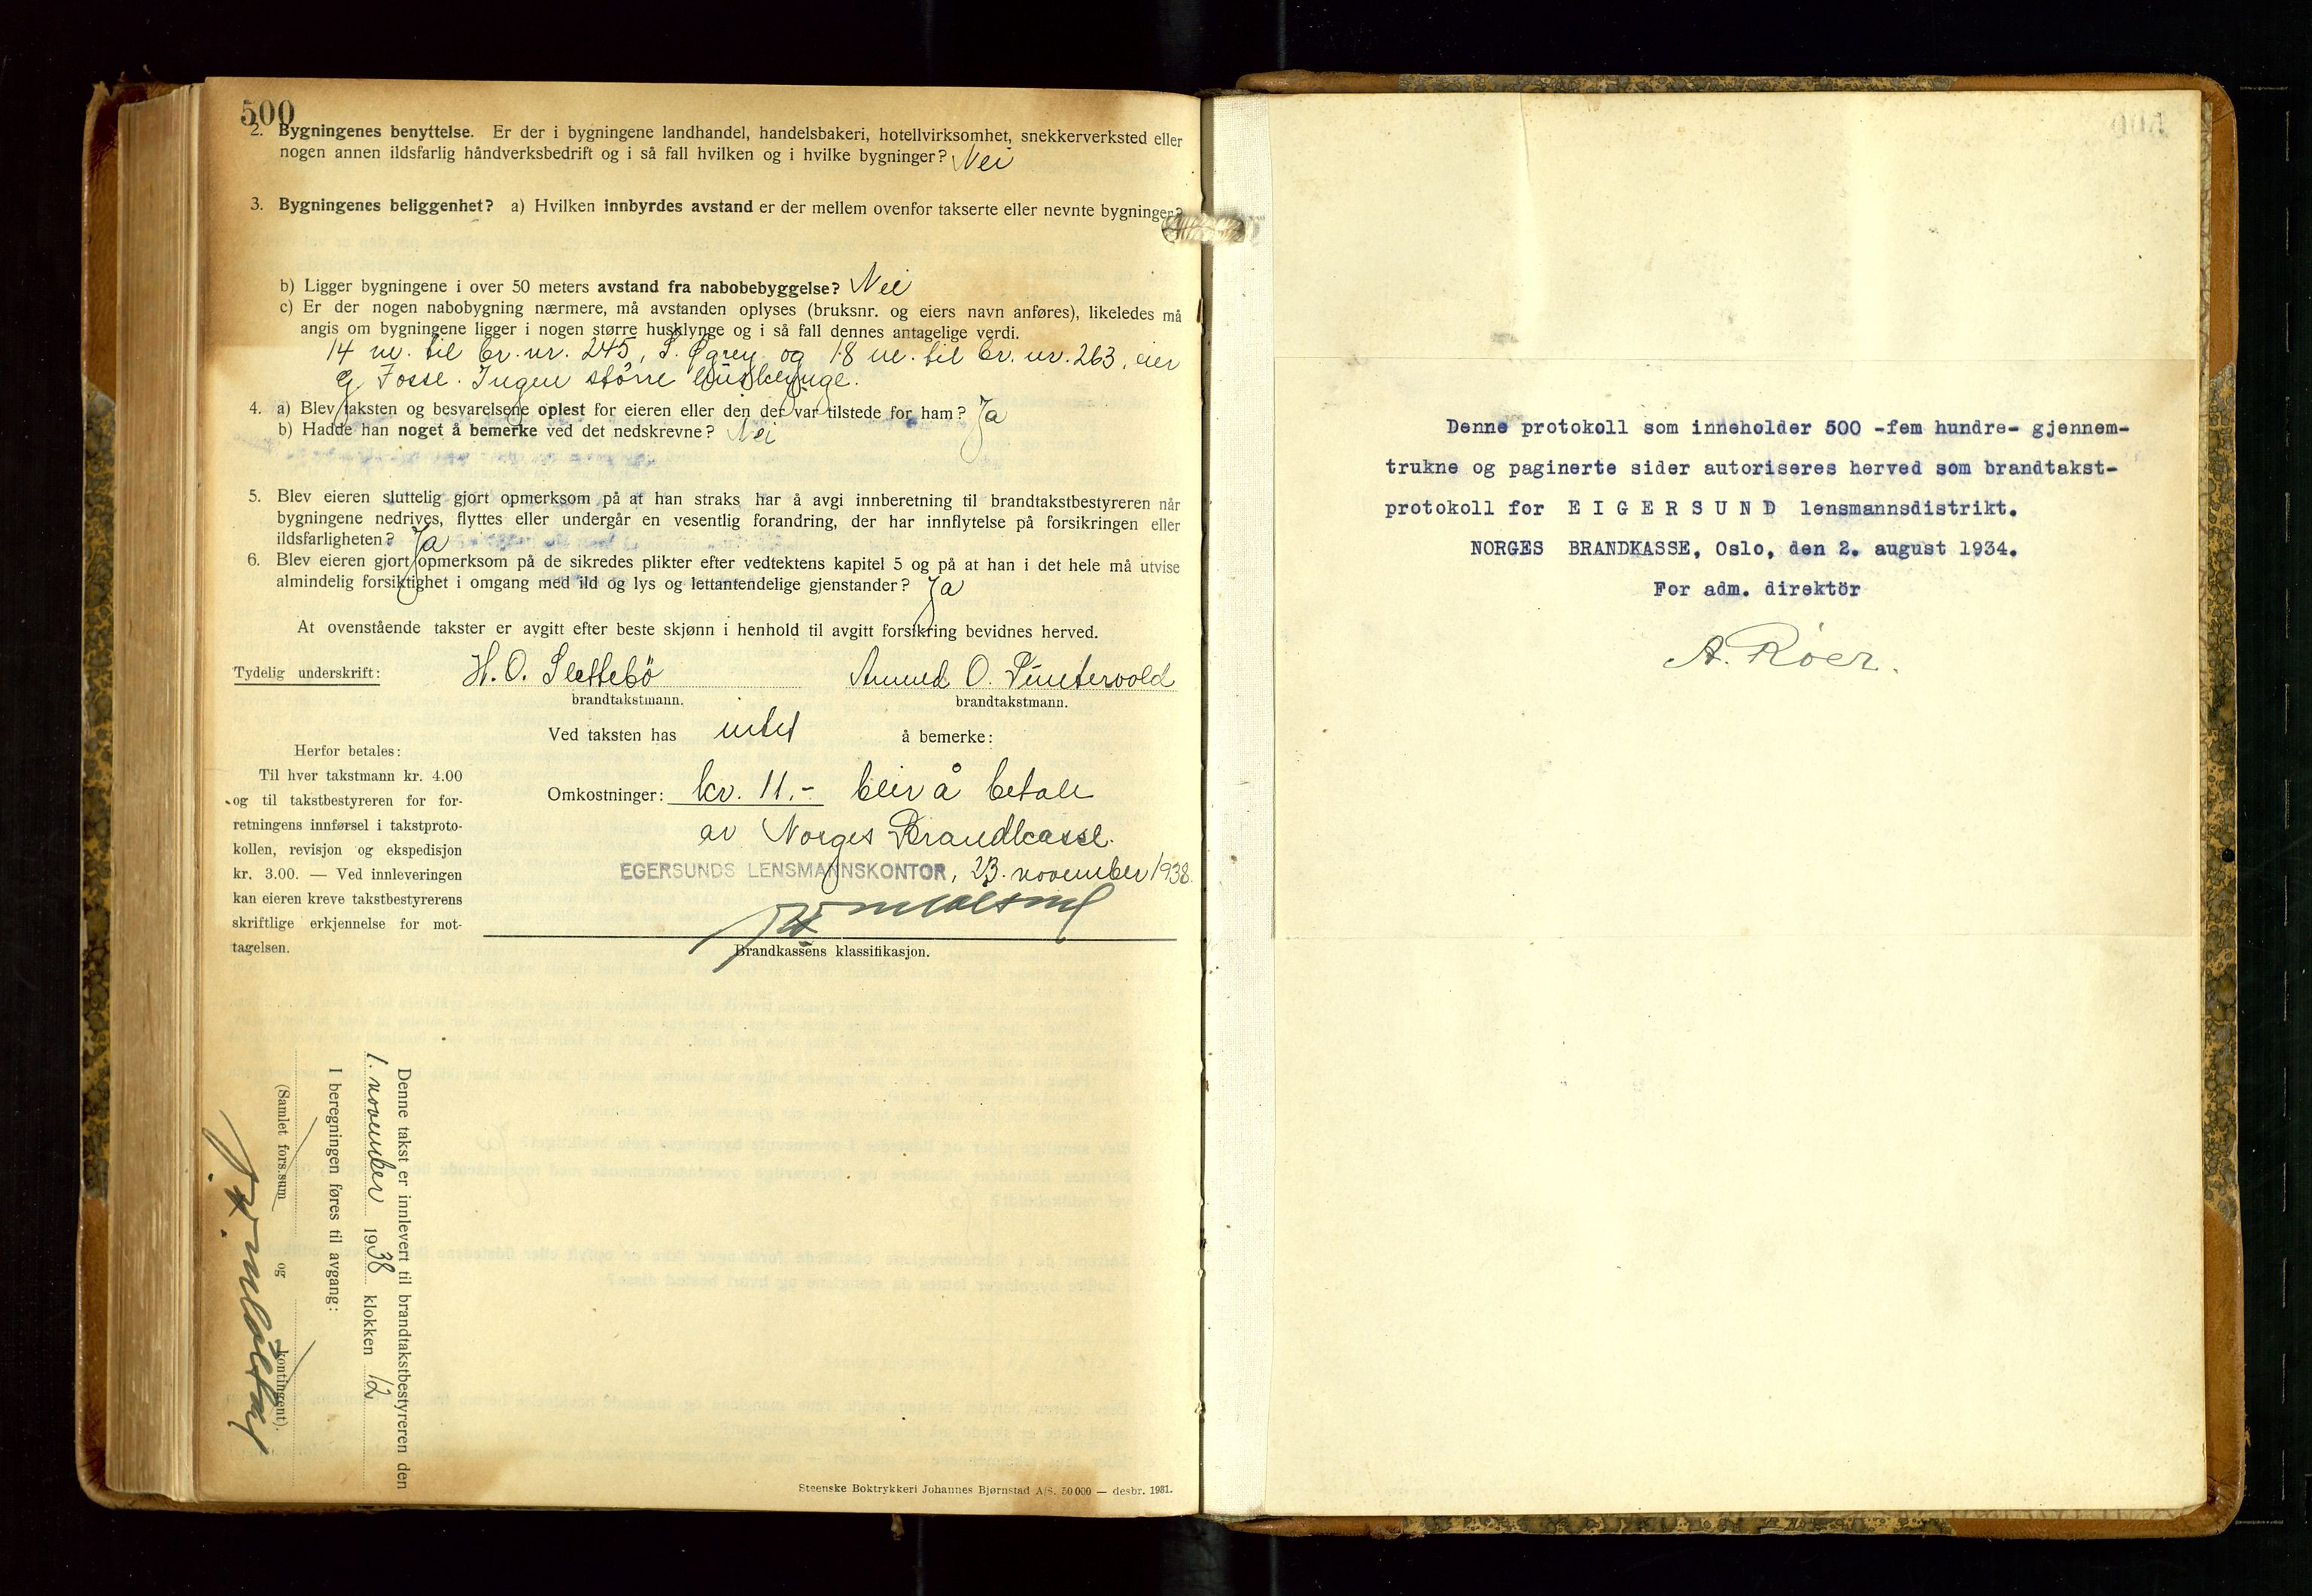 500
2. Bygningenes benyttelse. Er der i bygningene landhandel, handelsbakeri, hotellvirksomhet, snekkerverksted eller
nogen annen ildsfarlig håndverksbedrift og i så fall hvilken og i hvilke bygninger? Nei
3. Bygningenes beliggenhet? a) Hvilken innbyrdes avstand er der mellem ovenfor takserte eller nevnte bygninger?
b) Ligger bygningene i over 50 meters avstand fra nabobebyggelse? Nei
c) Er der nogen nabobygning nærmere, må avstanden oplyses (bruksnr. og eiers navn anføres), likeledes må
angis om bygningene ligger i nogen større husklynge og i så fall dennes antagelige verdi.
14 m. til br. nr. 245, S. og 18 m. til br. nr. 263, eier
G. Fosse. Ingen större husklynge.
4. a) Blev taksten og besvarelsene oplest for eieren eller den der var tilstede for ham? Ja
b) Hadde han noget å bemerke ved det nedskrevne? Nei
5. Blev eieren sluttelig gjort opmerksom på at han straks har å avgi innberetning til brandtakstbestyreren når
bygningene nedrives, flyttes eller undergår en vesentlig forandring, der har innflytelse på forsikringen eller
ildsfarligheten? Ja
6. Blev eieren gjort opmerksom på de sikredes plikter efter vedtektens kapitel 5 og på at han i det hele må utvise
almindelig forsiktighet i omgang med ild og lys og lettantendelige gjenstander? Ja
At ovenstående takster er avgitt efter beste skjønn i henhold til avgitt forsikring bevidnes herved.
Tydelig underskrift: H. O. Slettebö Amund O. Puntervold
brandtakstmann. brandtakstmann.
Ved taksten has intet å bemerke:
Herfor betales:
Til hver takstmann kr. 4.00
og til takstbestyreren for for-
retningens innførsel i takstproto-
kollen, revisjon og ekspedisjon
kr. 3.00. — Ved innleveringen
kan eieren kreve takstbestyrerens
skriftlige erkjennelse for mot-
tagelsen.
Omkostninger: kr. 11.- blir å betale
av Norges Brandkasse.
EGERSUNDS LENSMANNSKONTOR, 23. november 1938
Brandkassens klassifikasjon.
Denne takst er innlevert til brandtakstbestyreren den
1. november 1938 klokken 12
I beregningen føres til avgang:
(Samlet fors.sum og kontingent).
Steenske Boktrykkeri Johannes Bjørnstad A/S. 50 000 — desbr. 1931.
Denne protokoll som inneholder 500 -fem hundre- gjennem-
trukne og paginerte sider autoriseres herved som brandtakst-
protokoll for E I G E R S U N D lensmannsdistrikt.
NORGES BRANDKASSE, Oslo, den 2. august 1934.
For adm. direktör
A. Röer.